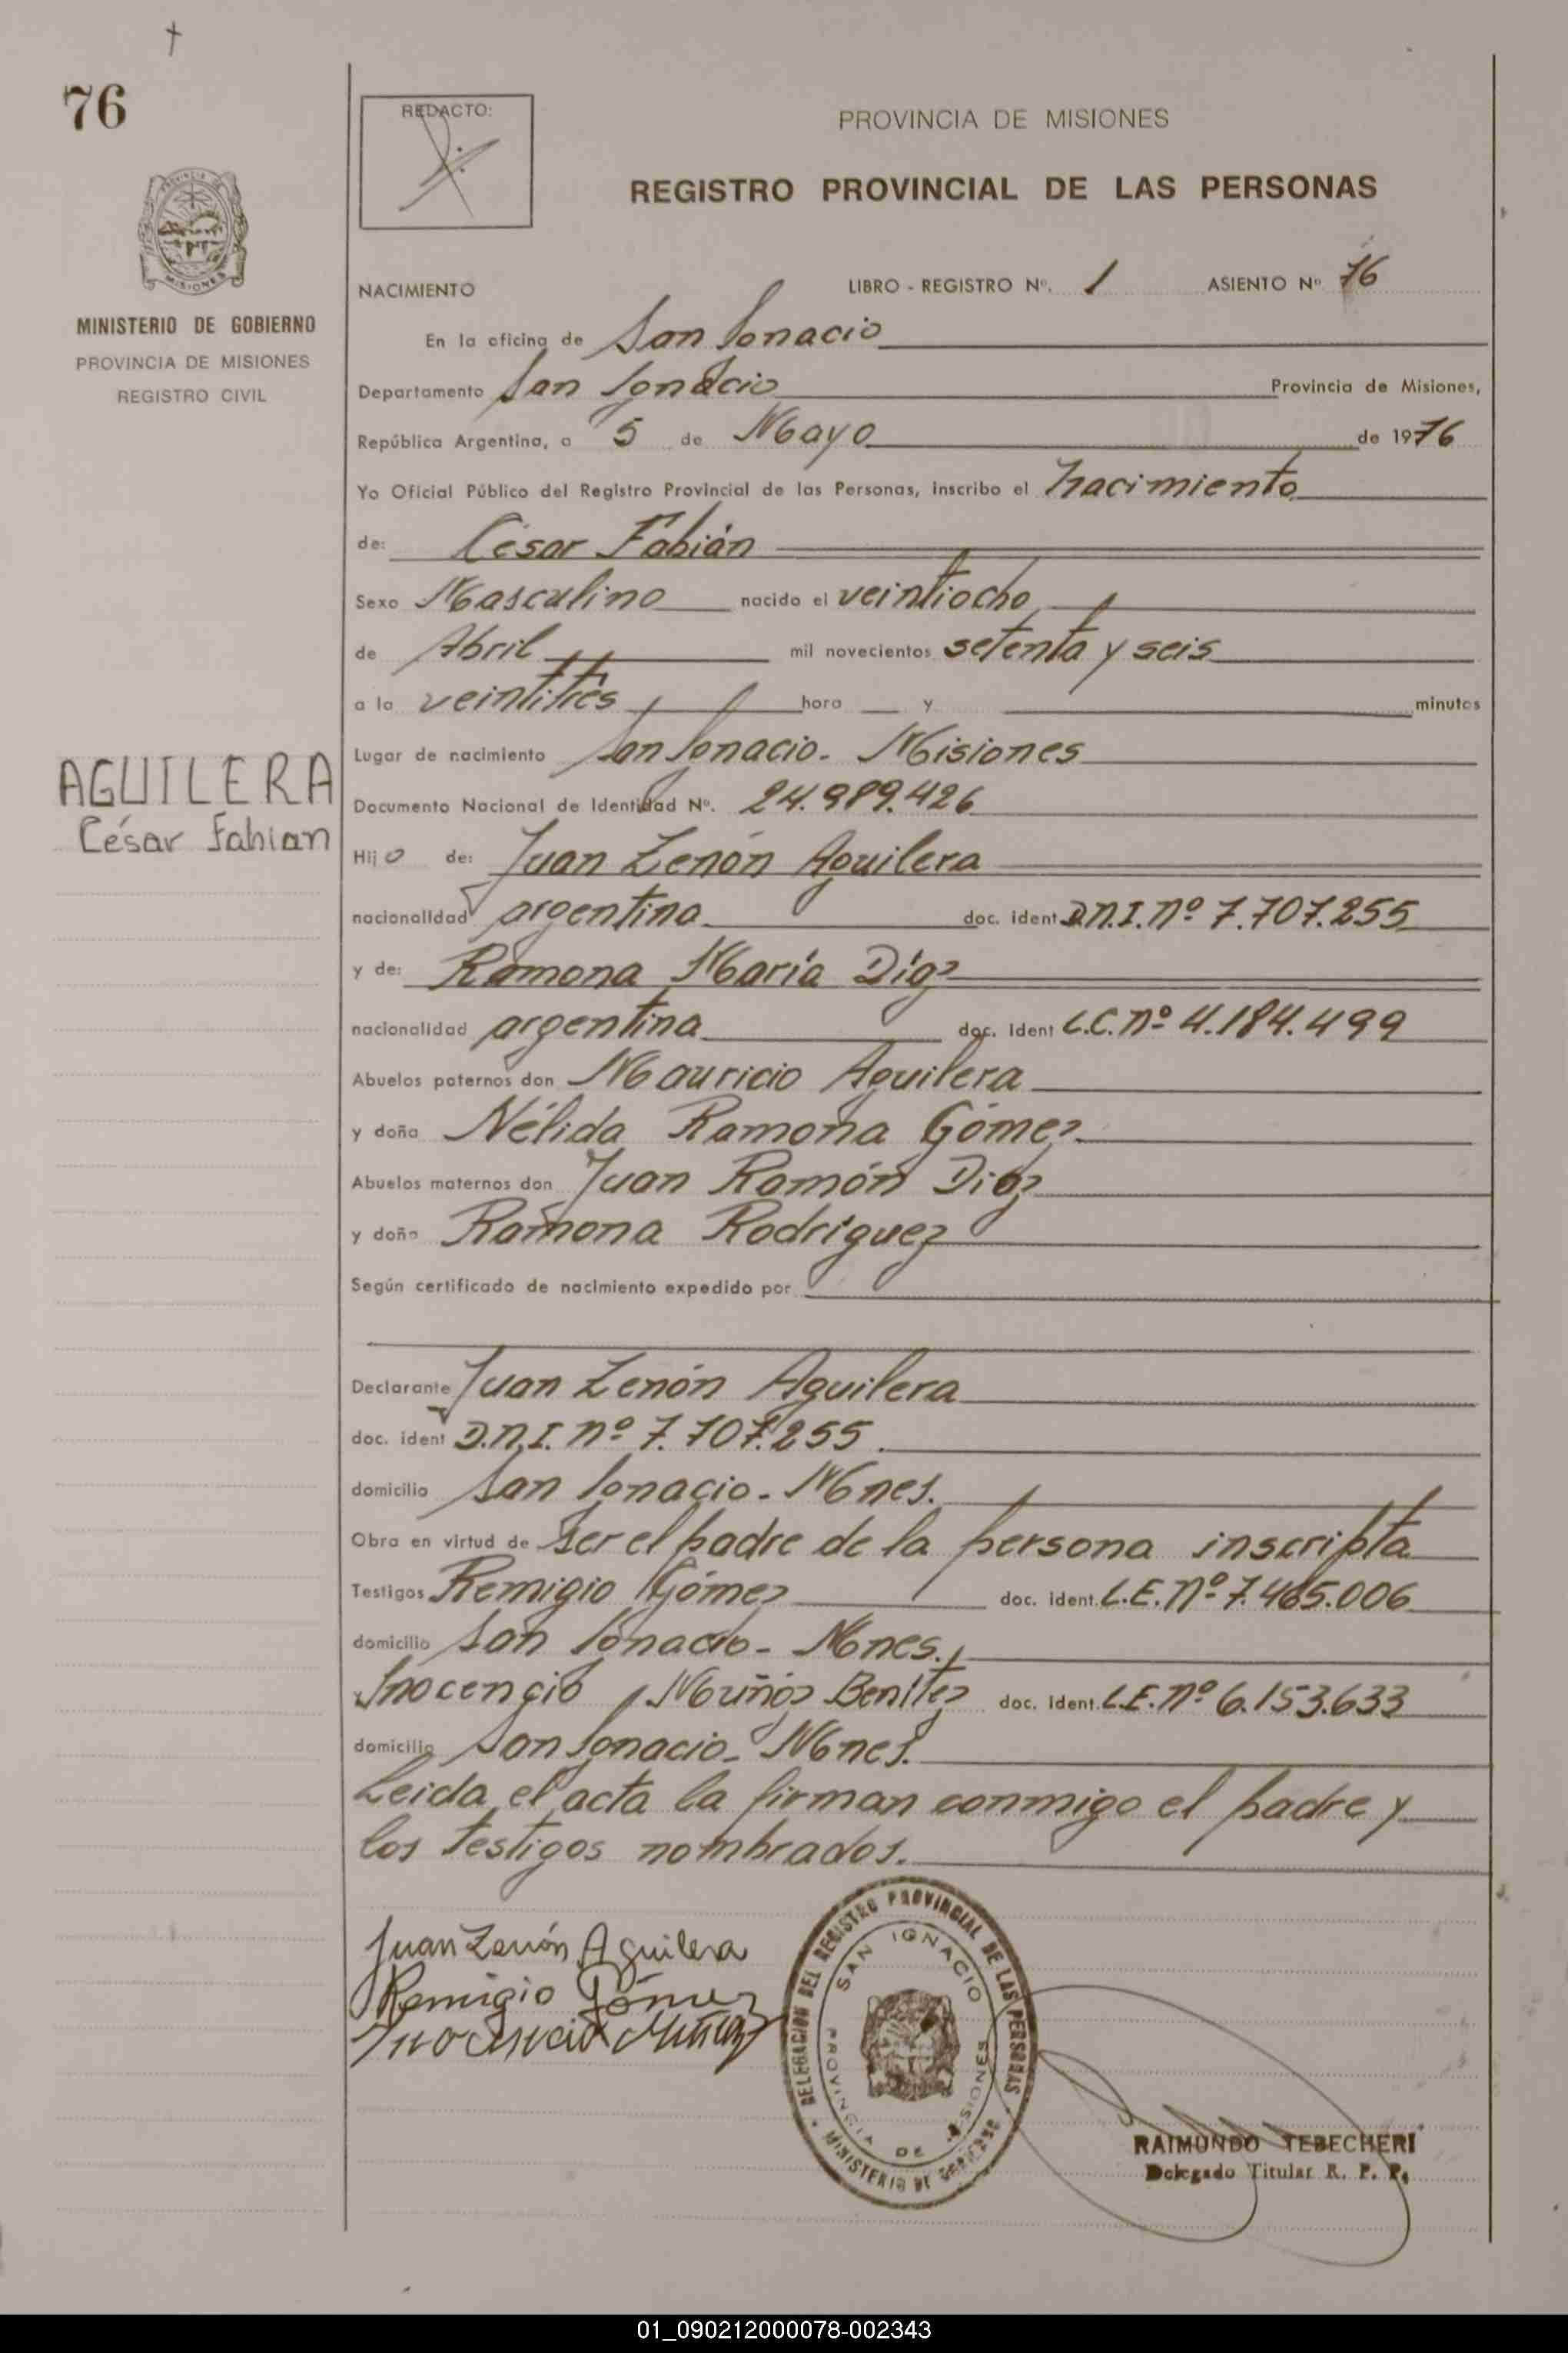 76
REDACTO:
PROVINCIA DE MISIONES
REGISTRO PROVINCIAL DE LAS PERSONAS
MINISTERIO DE GOBIERNO
PROVINCIA DE MISIONES
REGISTRO CIVIL
NACIMIENTO LIBRO - REGISTRO Nº. 1 ASIENTO Nº 76
En la oficina de San Ignacio
Departamento San Ignacio Provincia de Misiones,
República Argentina, a 5 de Mayo de 1976
Yo Oficial Público del Registro Provincial de las Personas, inscribo el nacimiento
de: César Fabián
Sexo Masculino nacido el veintiocho
de Abril mil novecientos setenta y seis
a la veintitrés hora y minutos
Lugar de nacimiento San Ignacio - Misiones
AGUILERA
César Fabian
Documento Nacional de Identidad Nº. 24.989.426
Hijo de: Juan Zenón Aguilera
nacionalidad argentina doc. ident D.N.I. nº 7.707.255
y de: Ramona María Díaz
nacionalidad argentina doc. Ident L.C. nº 4.184.499
Abuelos paternos don Mauricio Aguilera
y doña Nélida Ramona Gómez
Abuelos maternos don Juan Ramón Díaz
y doña Ramona Rodríguez
Según certificado de nacimiento expedido por
Declarante Juan Zenón Aguilera
doc. ident D.N.I. nº 7.707.255
domicilio San Ignacio - Mnes.
Obra en virtud de ser el padre de la persona inscripta
Testigos Remigio Gómez doc. ident. L.E. nº 7.465.006
domicilio San Ignacio - Mnes.
Inocencio Muñóz Benítez doc. Ident. L.E. nº 6.153.633
domicilio San Ignacio - Mnes.
Leida el acta la firman conmigo el padre y
los testigos nombrados.
Juan Zenón Aguilera
Remigio Gómez
Inocencio Muñoz
DELEGACION DEL REGISTRO PROVINCIAL DE LAS PERSONAS
SAN IGNACIO
PROVINCIA DE MISIONES
MINISTERIO DE GOBIERNO
RAIMUNDO TEBECHERI
Delegado Titular R. P. P.
01_090212000078-002343